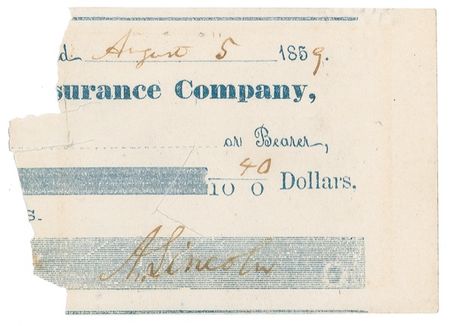 d August 5 1859.
surance Company,
or Bearer,
40
100 Dollars.
s.
A. Lincoln